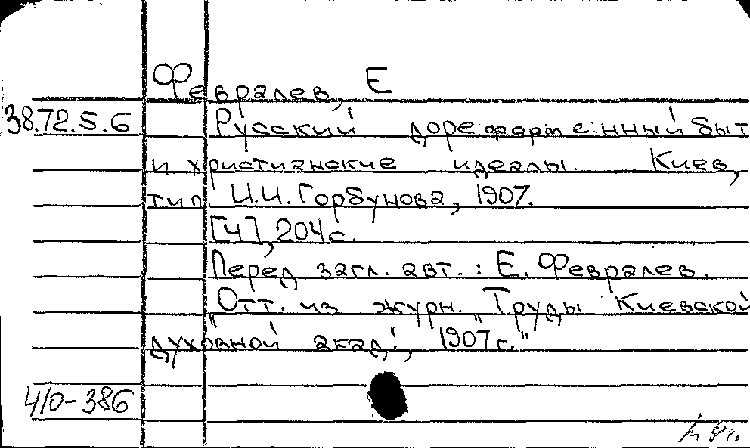 Февралев, Е
38.72.5.6 Русский дореформенный быт
и христианские идеалы. Киев,
тип И.И. Горбунова, 1907.
[4], 204 с.
Перед загл. авт.: Е. Февралев.
"Отт. из журн. "Труды Киевской
духовной акад.", 1907 г."
410-386